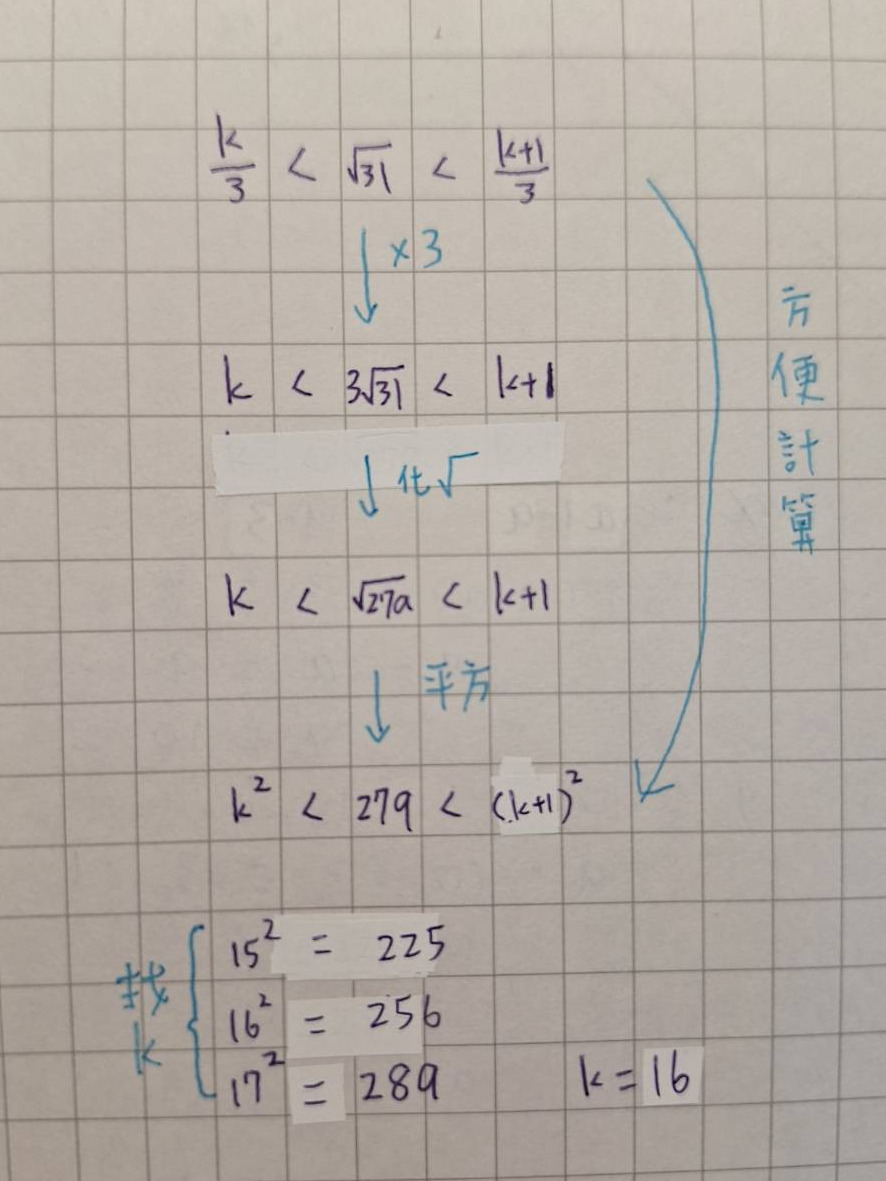 k/3 < √31 < (k+1)/3
×3
k < 3√31 < k+1
化√
k < √279 < k+1
平方
k² < 279 < (k+1)²
方便計算
找k
15² = 225
16² = 256
17² = 289
k = 16